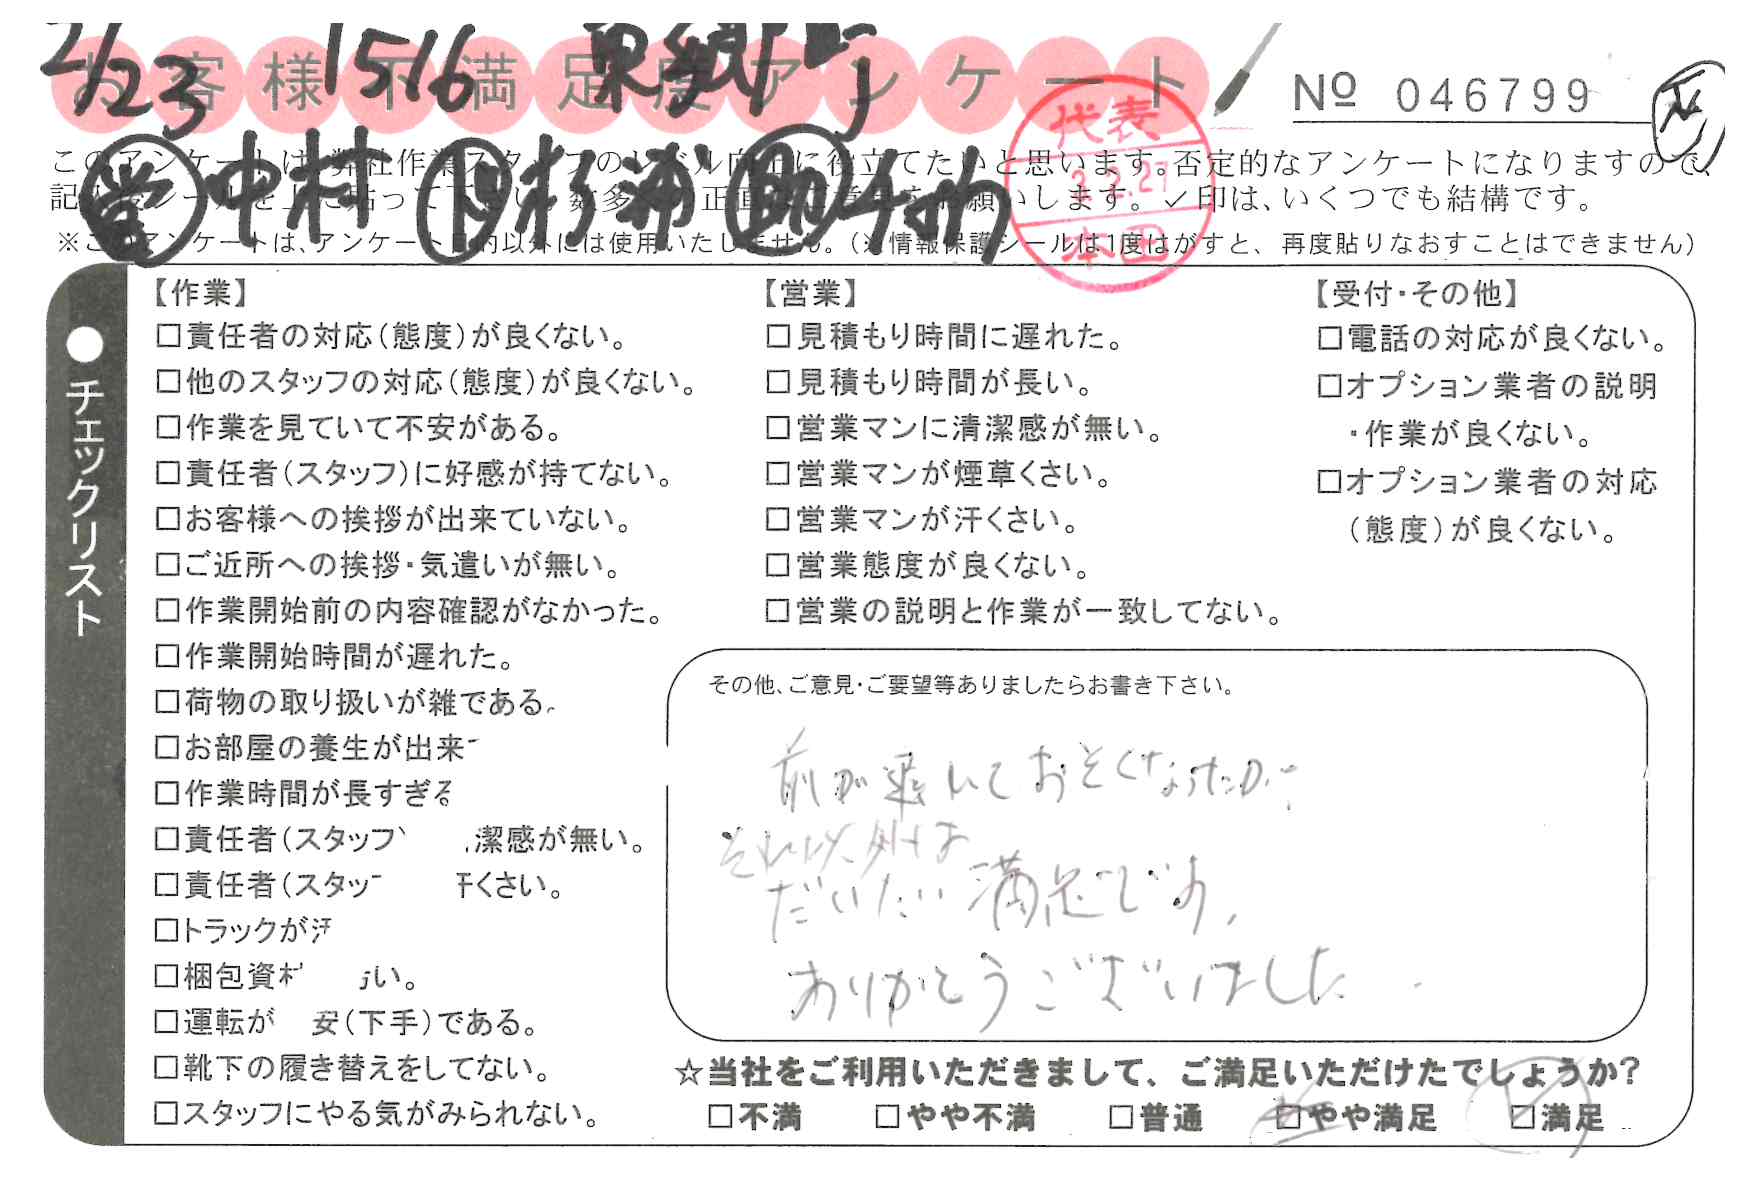 2/23 1516 東郷町
お客様不満足度アンケート
No 046799
代表
2.27
本田
このアンケートは、弊社作業スタッフのレベル向上に役立てたいと思います。否定的なアンケートになりますので、
営 中村 杉浦 助
願いします。✓印は、いくつでも結構です。
※このアンケートは、アンケート目的以外には使用いたしません。（※情報保護シールは1度はがすと、再度貼りなおすことはできません）
●チェックリスト
【作業】
□責任者の対応（態度）が良くない。
□他のスタッフの対応（態度）が良くない。
□作業を見ていて不安がある。
□責任者（スタッフ）に好感が持てない。
□お客様への挨拶が出来ていない。
□ご近所への挨拶・気遣いが無い。
□作業開始前の内容確認がなかった。
□作業開始時間が遅れた。
□荷物の取り扱いが雑である。
□お部屋の養生が出来
□作業時間が長すぎる
□責任者（スタッフ 潔感が無い。
□責任者（スタッ 汗くさい。
□トラックが汚
□梱包資材 い。
□運転が 安（下手）である。
□靴下の履き替えをしてない。
□スタッフにやる気がみられない。
【営業】
□見積もり時間に遅れた。
□見積もり時間が長い。
□営業マンに清潔感が無い。
□営業マンが煙草くさい。
□営業マンが汗くさい。
□営業態度が良くない。
□営業の説明と作業が一致してない。
【受付・その他】
□電話の対応が良くない。
□オプション業者の説明
・作業が良くない。
□オプション業者の対応
（態度）が良くない。
その他、ご意見・ご要望等ありましたらお書き下さい。
前が遅れておそくなったが、
それ以外は
だいたい満足です。
ありがとうございました
☆当社をご利用いただきまして、ご満足いただけたでしょうか？
□不満 □やや不満 □普通 □やや満足 ☑満足